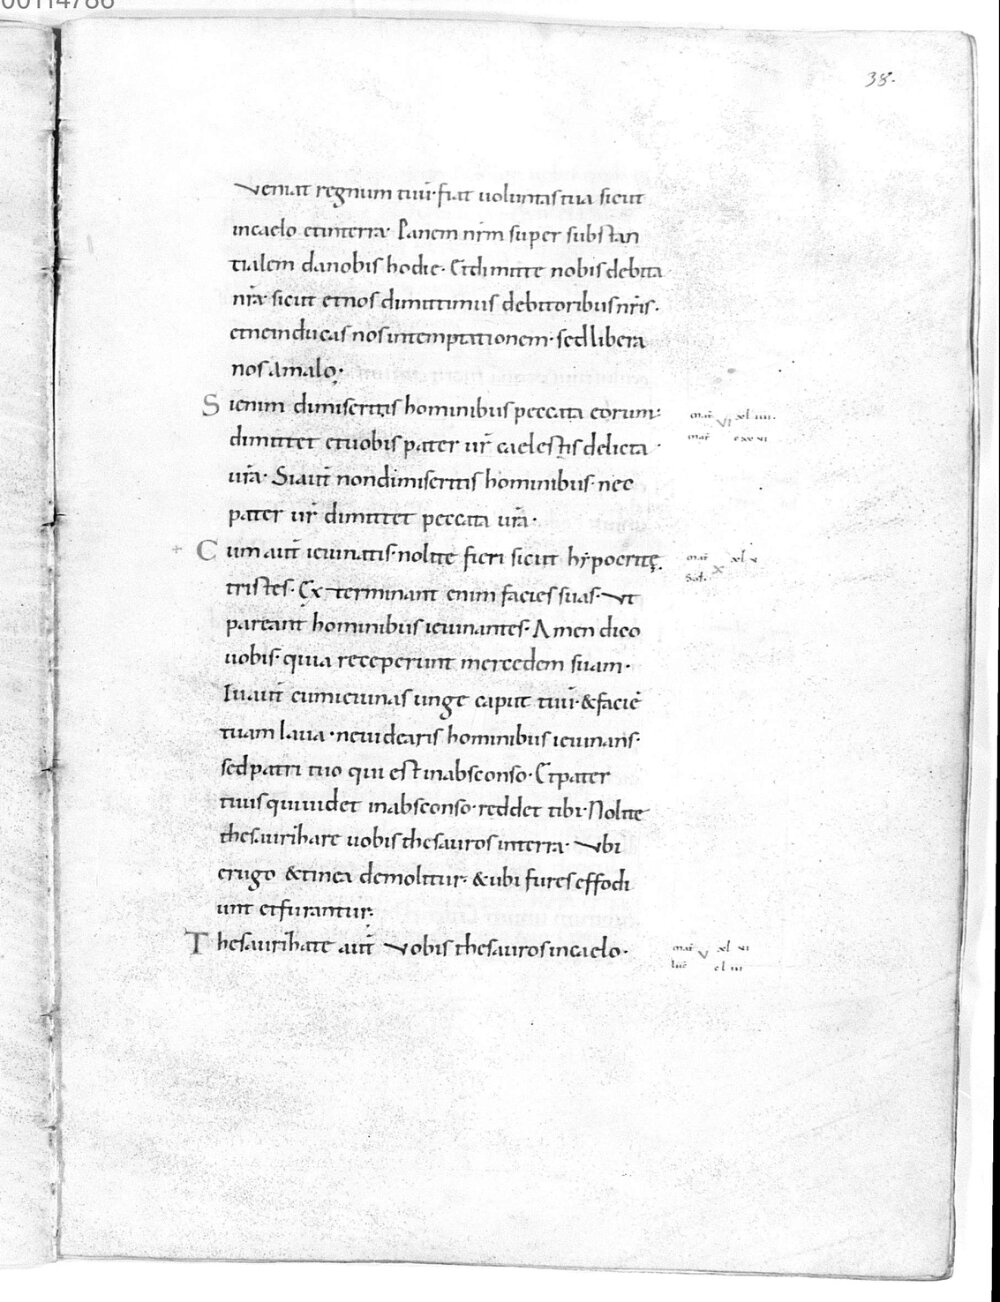 00114786
38.
Veniat regnum tuū· fiat uoluntas tua sicut
incaelo etinterra· Panem nr̄m super substan
tialem danobis hodie· Etdimitte nobis debita
nr̄a· sicut etnos dimittimus debitoribus nr̄is·
etneinducas nos intemptationem· sed libera
nos amalo·
Sienim dimiseritis hominibus peccata eorum·
dimittet etuobis pater ur̄ caelestis delicta·
ur̄a· Siaut̄ nondimiseritis hominibus· nec
pater ur̄ dimittet peccata ur̄a·
mar̄ VI xl IIII·
mar̄ cxxvi
Cum aut̄ ieiunatis· nolite fieri sicut hypocritę·
tristes· Exterminant enim facies suas· Vt
pareant hominibus ieiunantes· Amen dico
uobis· quia receperunt mercedem suam·
mat̄ X xl v
Sol.
Tuaut̄ cumieiunas unge caput tuū· & faciē
tuam laua· neuidearis hominibus ieiunans·
sedpatri tuo qui est inabsconso· Etpater
tuus quiuidet inabsconso· reddet tibi· Nolite
thesaurihare uobis thesauros interra· Vbi
erugo & tinea demolitur· & ubi fures effodi
unt etfurantur·
Thesaurihate aut̄ Vobis thesauros incaelo·
mat̄ V xl vi
luc̄ cl III